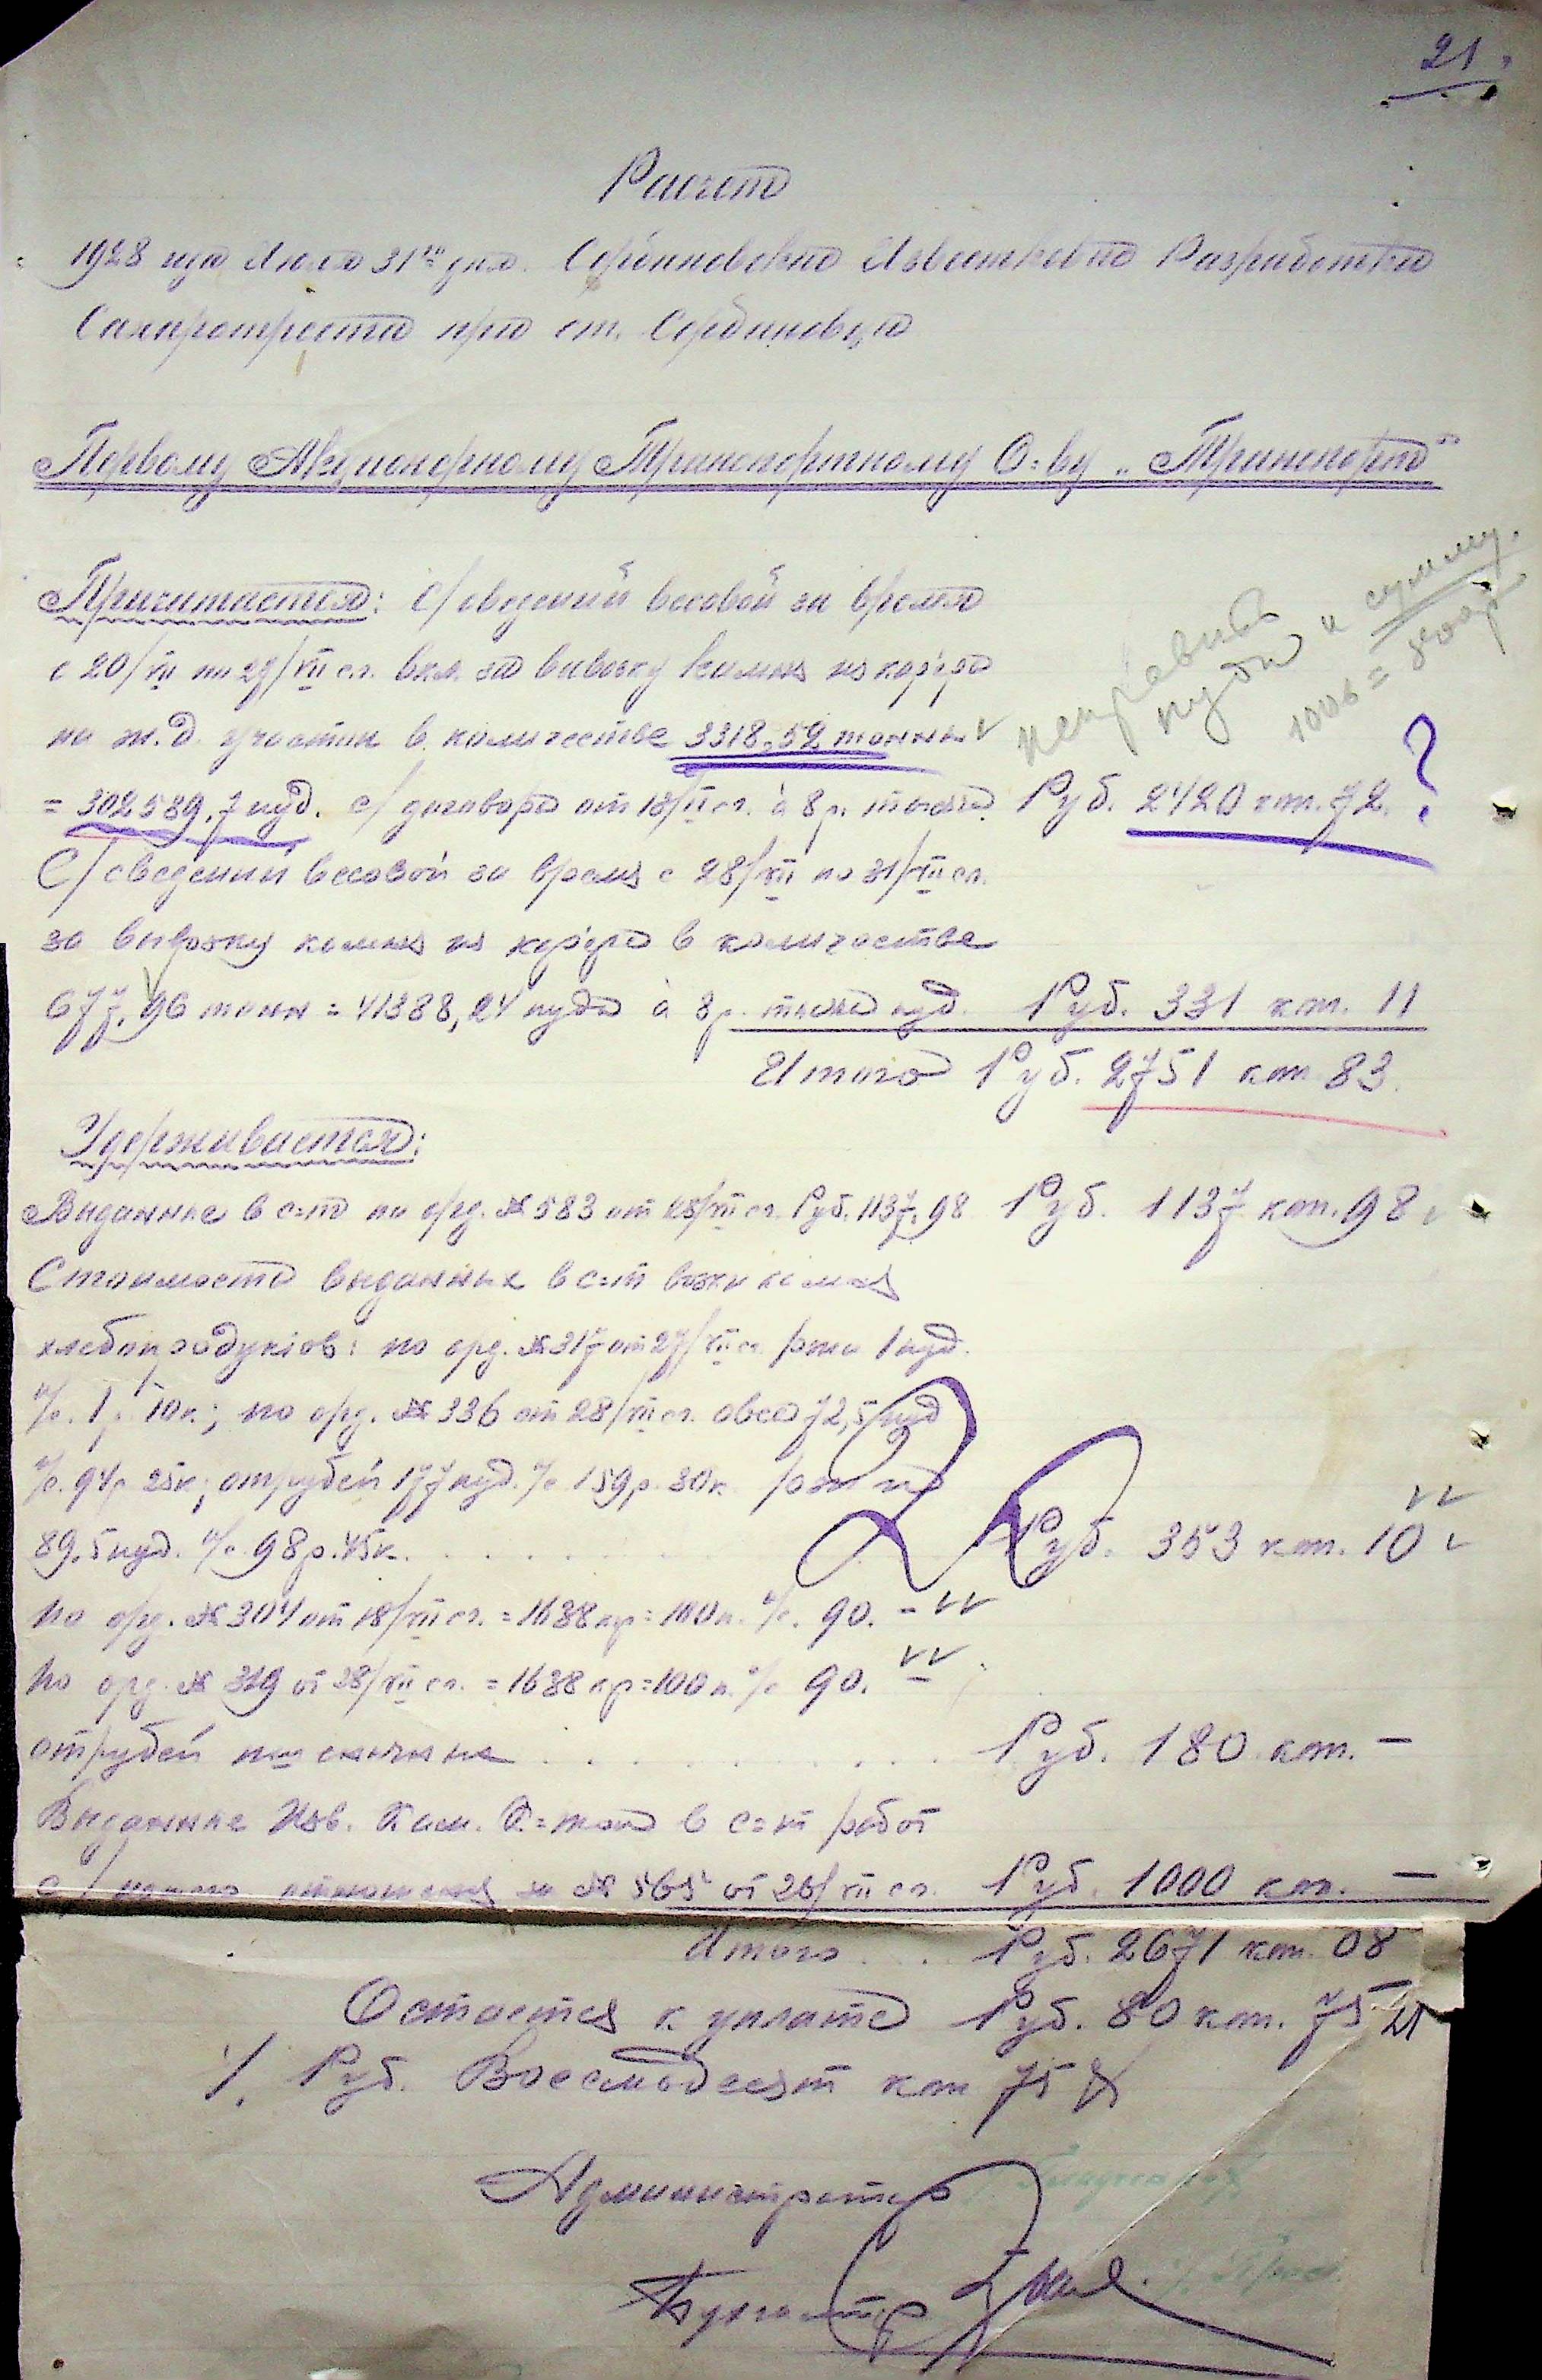 21.
Расчет
1928 года Июля 31го дня. Сербиновская Известковая Разработка
Сахаротреста при ст. Сербиновцы
Первому Акционерному Транспортному О-ву „Транспорт"
Причитается: С/ сведений весовой за время
с 20/VII по 29/VII с.г. вкл. за вывозку камня из карьера
на ж.д. участки в количестве 3318,52 тонны
= 302589,7 пуд. с/ договора от 18/ с.г. à 8 р. тысяча Руб. 2420 коп. 72. ?
неправильн пуды и сумму.
1006 =
С/ сведений весовой за время с 28/VII по 31/VII с.г.
за вывозку камня из карьера в количестве
677,96 тонн = 41388,24 пуда à 8 р. тысяча пуд. Руб. 331 коп. 11
Итого Руб. 2751 коп 83.
Удерживается:
Выданные в с=т по орд. № 583 от 18/VII с.г. Руб. 1137,98 Руб. 1137 коп. 98
Стоимость выданных в с=т возки камня
хлебопродуктов: по орд. № 317 от 27/VII с.г. ржи 1 пуд.
н/с. 1 р. 10 к.; по орд. № 336 от 28/VII с.г. овса 72,5 пуд
н/с. 94 р 25 к; отрубей 177 пуд. н/с 159 р. 30 к. ржи
89,5 пуд. н/с 98 р. 45 к. Руб. 353 коп. 10
по орд. № 304 от 18/VII с.г. = 1638 кг = 100 п. н/с. 90. -
по орд. № 319 от 28/VII с.г. = 1638 кг = 100 п. н/с 90. -
отрубей пшеничных Руб. 180 коп. -
Выданные Изв. Кам. К=том в с=т работ
с/ нашего отношения за № 565 от 26/VII с.г. Руб. 1000 коп. -
Итого . . Руб. 2671 коп. 08
Остается к уплате Руб. 80 коп. 75
Руб. Восемьдесят коп 75
Администратор
Бухгалтер